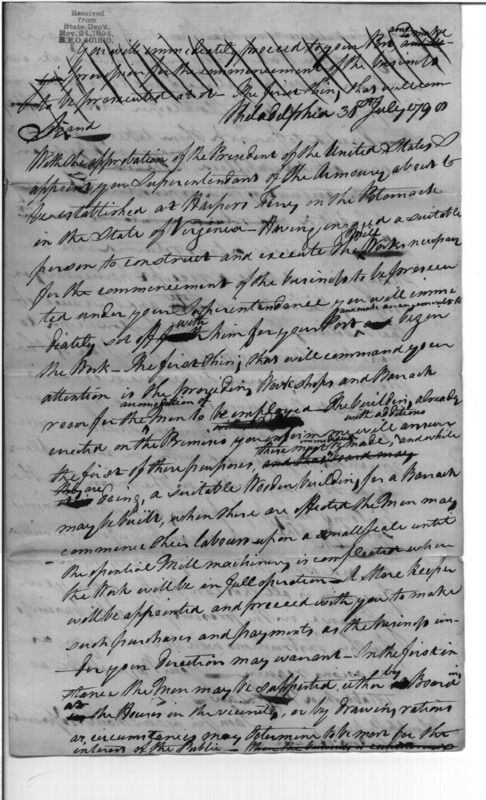 Received
from
State Dep't.
Nov. 24, 1894.
You will immediately proceed to your Post and make
provision for the commencement of the business
to be prosecuted The first thing that will com
Philadelphia 31st July 1798
Strand
With the approbation of the President of the United States I
appoint you Superintendant of the Armoury about to
be established at Harpers Ferry on the Potomack
in the State of Virginia – Having engaged a suitable
person to construct and execute the Mill Works necessary
for the commencement of the business to be prosecu
ted under your Superintendance you will imme
diately set off with him for your Post and make arrangements to begin
the Work – The first thing that will command your
attention is the providing Work shops and Barrack
room for the accomodation of the Men to be employed – The building already
erected on the Premises you inform me with additions will answer
the first of these purposes, these must immediately be made, and while
they are doing, a suitable Wooden building for a Barrack
may be built, when these are effected the Men may
commence their labours upon a small scale until
the essential Mill machinery is compleated when
the Work will be in full operation – A Store keeper
will be appointed and proceed with you to make
such purchases and payments as the business un-
-der your direction may warrant – In the first in
stance the Men may be supported either by Boarding
at the Houses in the vicinity, or by drawing rations
as circumstances may determine to be most for the
interest of the Public –